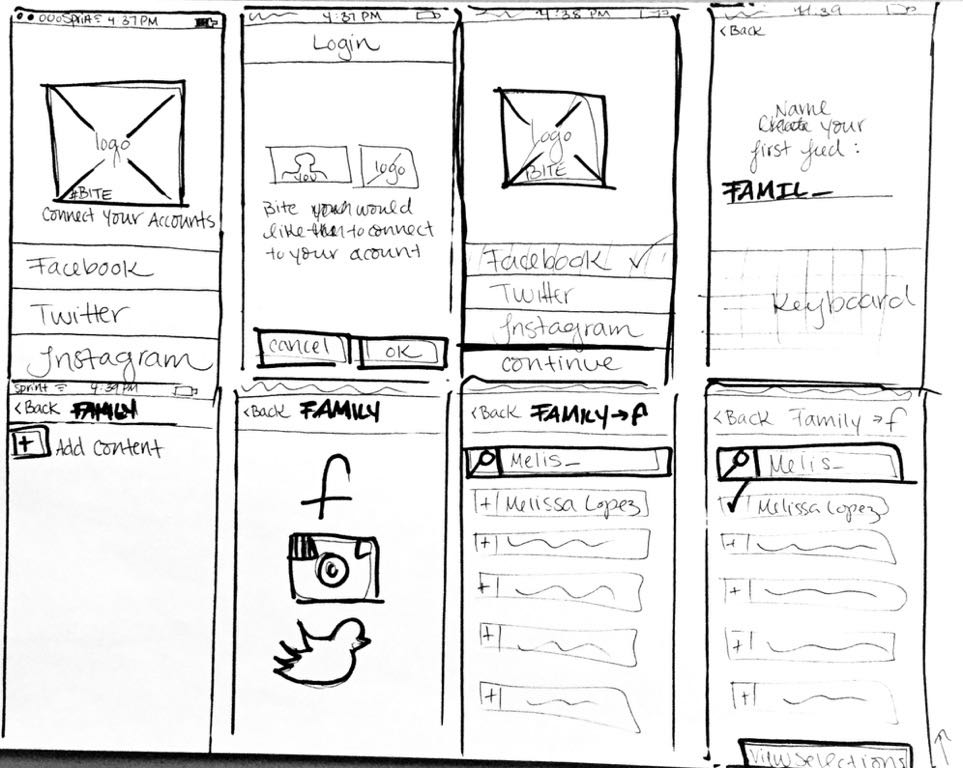 Sprint 4:37 PM
logo
#BITE
Connect Your Accounts
Facebook
Twitter
Instagram
4:37 PM
Login
You
logo
Bite would
like to connect
to your acount
cancel
OK
4:38 PM
logo
BITE
Facebook ✓
Twitter
Instagram
continue
11:39
<Back
Name
Create your
first feed:
FAMIL_
Keyboard
Sprint 4:39 PM
<Back FAMILY
+ Add Content
<Back FAMILY
f
<Back FAMILY→f
Melis_
+ Melissa Lopez
+
+
+
+
<Back Family→f
Melis_
✓ Melissa Lopez
+
+
+
+
View Selections